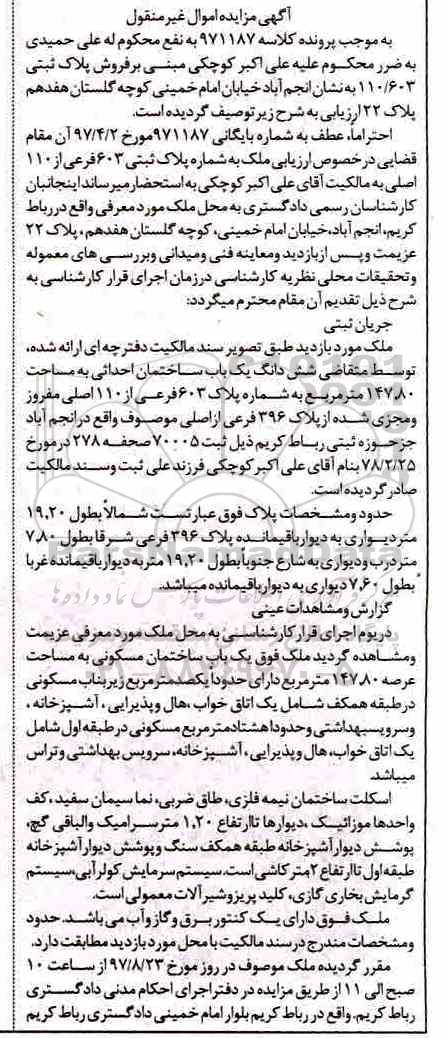 آگهی مزایده اموال غیر منقول
به موجب پرونده کلاسه ۹۷۱۱۸۷ به نفع محکوم له علی حمیدی
به ضرر محکوم علیه علی اکبر کوچکی مبنی بر فروش پلاک ثبتی
۱۱۰/۶۰۳ به نشان انجم آباد خیابان امام خمینی کوچه گلستان هفدهم
پلاک ۲۲ ارزیابی به شرح زیر توصیف گردیده است.
احتراماً، عطف به شماره بایگانی ۹۷۱۱۸۷ مورخ ۹۷/۴/۲ آن مقام
قضایی درخصوص ارزیابی ملک به شماره پلاک ثبتی ۶۰۳ فرعی از ۱۱۰
اصلی به مالکیت آقای علی اکبر کوچکی به استحضار میرساند اینجانبان
کارشناسان رسمی دادگستری به محل ملک مورد معرفی واقع در رباط
کریم، انجم آباد، خیابان امام خمینی، کوچه گلستان هفدهم، پلاک ۲۲
عزیمت و پس از بازدید ومعاینه فنی ومیدانی وبررسی های معموله
و تحقیقات محلی نظریه کارشناسی در زمان اجرای قرار کارشناسی به
شرح ذیل تقدیم آن مقام محترم میگردد:
جریان ثبتی
ملک مورد بازدید طبق تصویر سند مالکیت دفترچه ای ارائه شده،
توسط متقاضی شش دانگ یک باب ساختمان احداثی به مساحت
۱۴۷،۸۰ مترمربع به شماره پلاک ۶۰۳ فرعی از ۱۱۰ اصلی مفروز
ومجزی شده از پلاک ۳۹۶ فرعی از اصلی موصوف واقع در انجم آباد
جزحوزه ثبتی رباط کریم ذیل ثبت ۷۰۰۰۵ صفحه ۲۷۸ در مورخ
۷۸/۲/۲۵ بنام آقای علی اکبر کوچکی فرزند علی ثبت وسند مالکیت
صادر گردیده است.
حدود ومشخصات پلاک فوق عبارتست شمالاً بطول ۱۹،۲۰
متر دیواری به دیوار باقیمانده پلاک ۳۹۶ فرعی شرقا بطول ۷،۸۰
متر درب ودیواری به شارع جنوباً بطول ۱۹،۲۰ متر به دیوار باقیمانده غربا
بطول ۷،۶۰ دیواری به دیوار باقیمانده میباشد.
گزارش ومشاهدات عینی
در یوم اجرای قرار کارشناسی به محل ملک مورد معرفی عزیمت
ومشاهده گردید ملک فوق یک باب ساختمان مسکونی به مساحت
عرصه ۱۴۷،۸۰ متر مربع دارای حدودا یکصد متر مربع زیربناب مسکونی
در طبقه همکف شامل یک اتاق خواب، هال و پذیرایی، آشپزخانه،
وسرویسبهداشتی وحدودا هشتاد متر مربع مسکونی در طبقه اول شامل
یک اتاق خواب، هال و پذیرایی، آشپزخانه، سرویس بهداشتی وتراس
میباشد.
اسکلت ساختمان نیمه فلزی، طاق ضربی، نما سیمان سفید، کف
واحدها موزائیک، دیوارها تا ارتفاع ۱،۲۰ متر سرامیک والباقی گچ،
پوشش دیوار آشپزخانه طبقه همکف سنگ و پوشش دیوار آشپزخانه
طبقه اول تا ارتفاع ۲ متر کاشی است. سیستم سرمایش کولر آبی، سیستم
گرمایش بخاری گازی، کلید پریز وشیرآلات معمولی است.
ملک فوق دارای یک کنتور برق و گاز و آب می باشد. حدود
ومشخصات مندرج در سند مالکیت با محل مورد بازدید مطابقت دارد.
مقرر گردیده ملک موصوف در روز مورخ ۹۷/۸/۲۳ از ساعت ۱۰
صبح الی ۱۱ از طریق مزایده در دفتر اجرای احکام مدنی دادگستری
رباط کریم. واقع در رباط کریم بلوار امام خمینی دادگستری رباط کریم